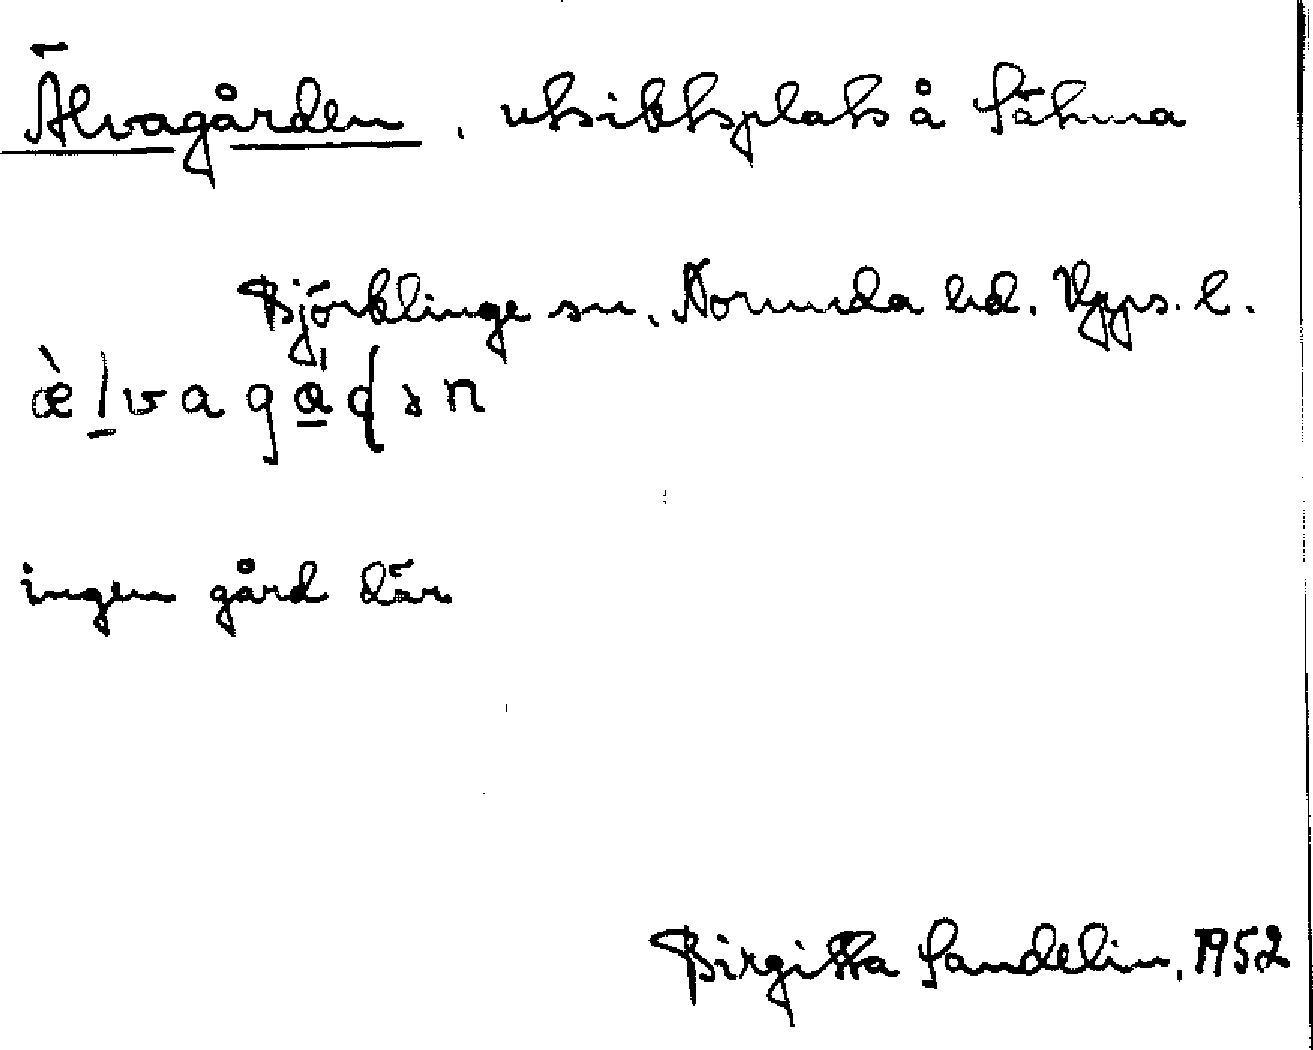 Älvagården, utsiktsplats å Sätuna
Björklinge sn. Norunda hd. Upps. l.
æ̀l̠vaga̠̍ɖən
ingen gård där
Birgitta Sandelin, 1952